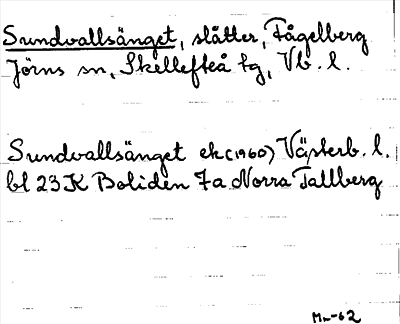 Sundvallsänget, slåtter, Fågelberg
Jörns sn, Skellefteå tg, Vb. l.
Sundvallsänget ek (1960) Västerb. l.
bl 23 K Boliden 7a Norra Tallberg